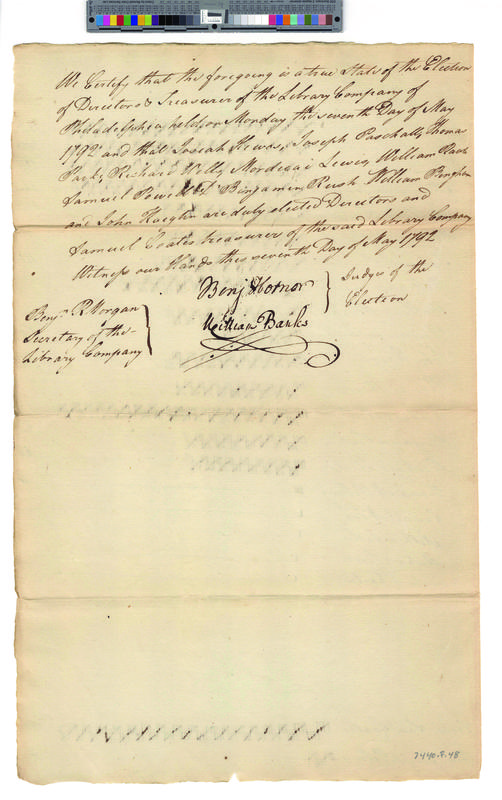 We Certify that the foregoing is a true State of the Election
of Directors & Treasurer of the Library Company of
Philadelphia, held on Monday the seventh Day of May
1792 and that Josiah Hewes, Joseph Paschall, Thomas
Parke, Richard Wells, Mordecai Lewis, William Rawle
Samuel Powel Benjamin Rush William Bingham
and John Kaighn are duly elected Directors and
Samuel Coates treasurer of the said Library Company
Witness our Hands this seventh Day of May 1792
Benj Hornor
William Banks
Judges of the
Election
Benjn. R Morgan
Secretary of the
Library Company
7440.F.48